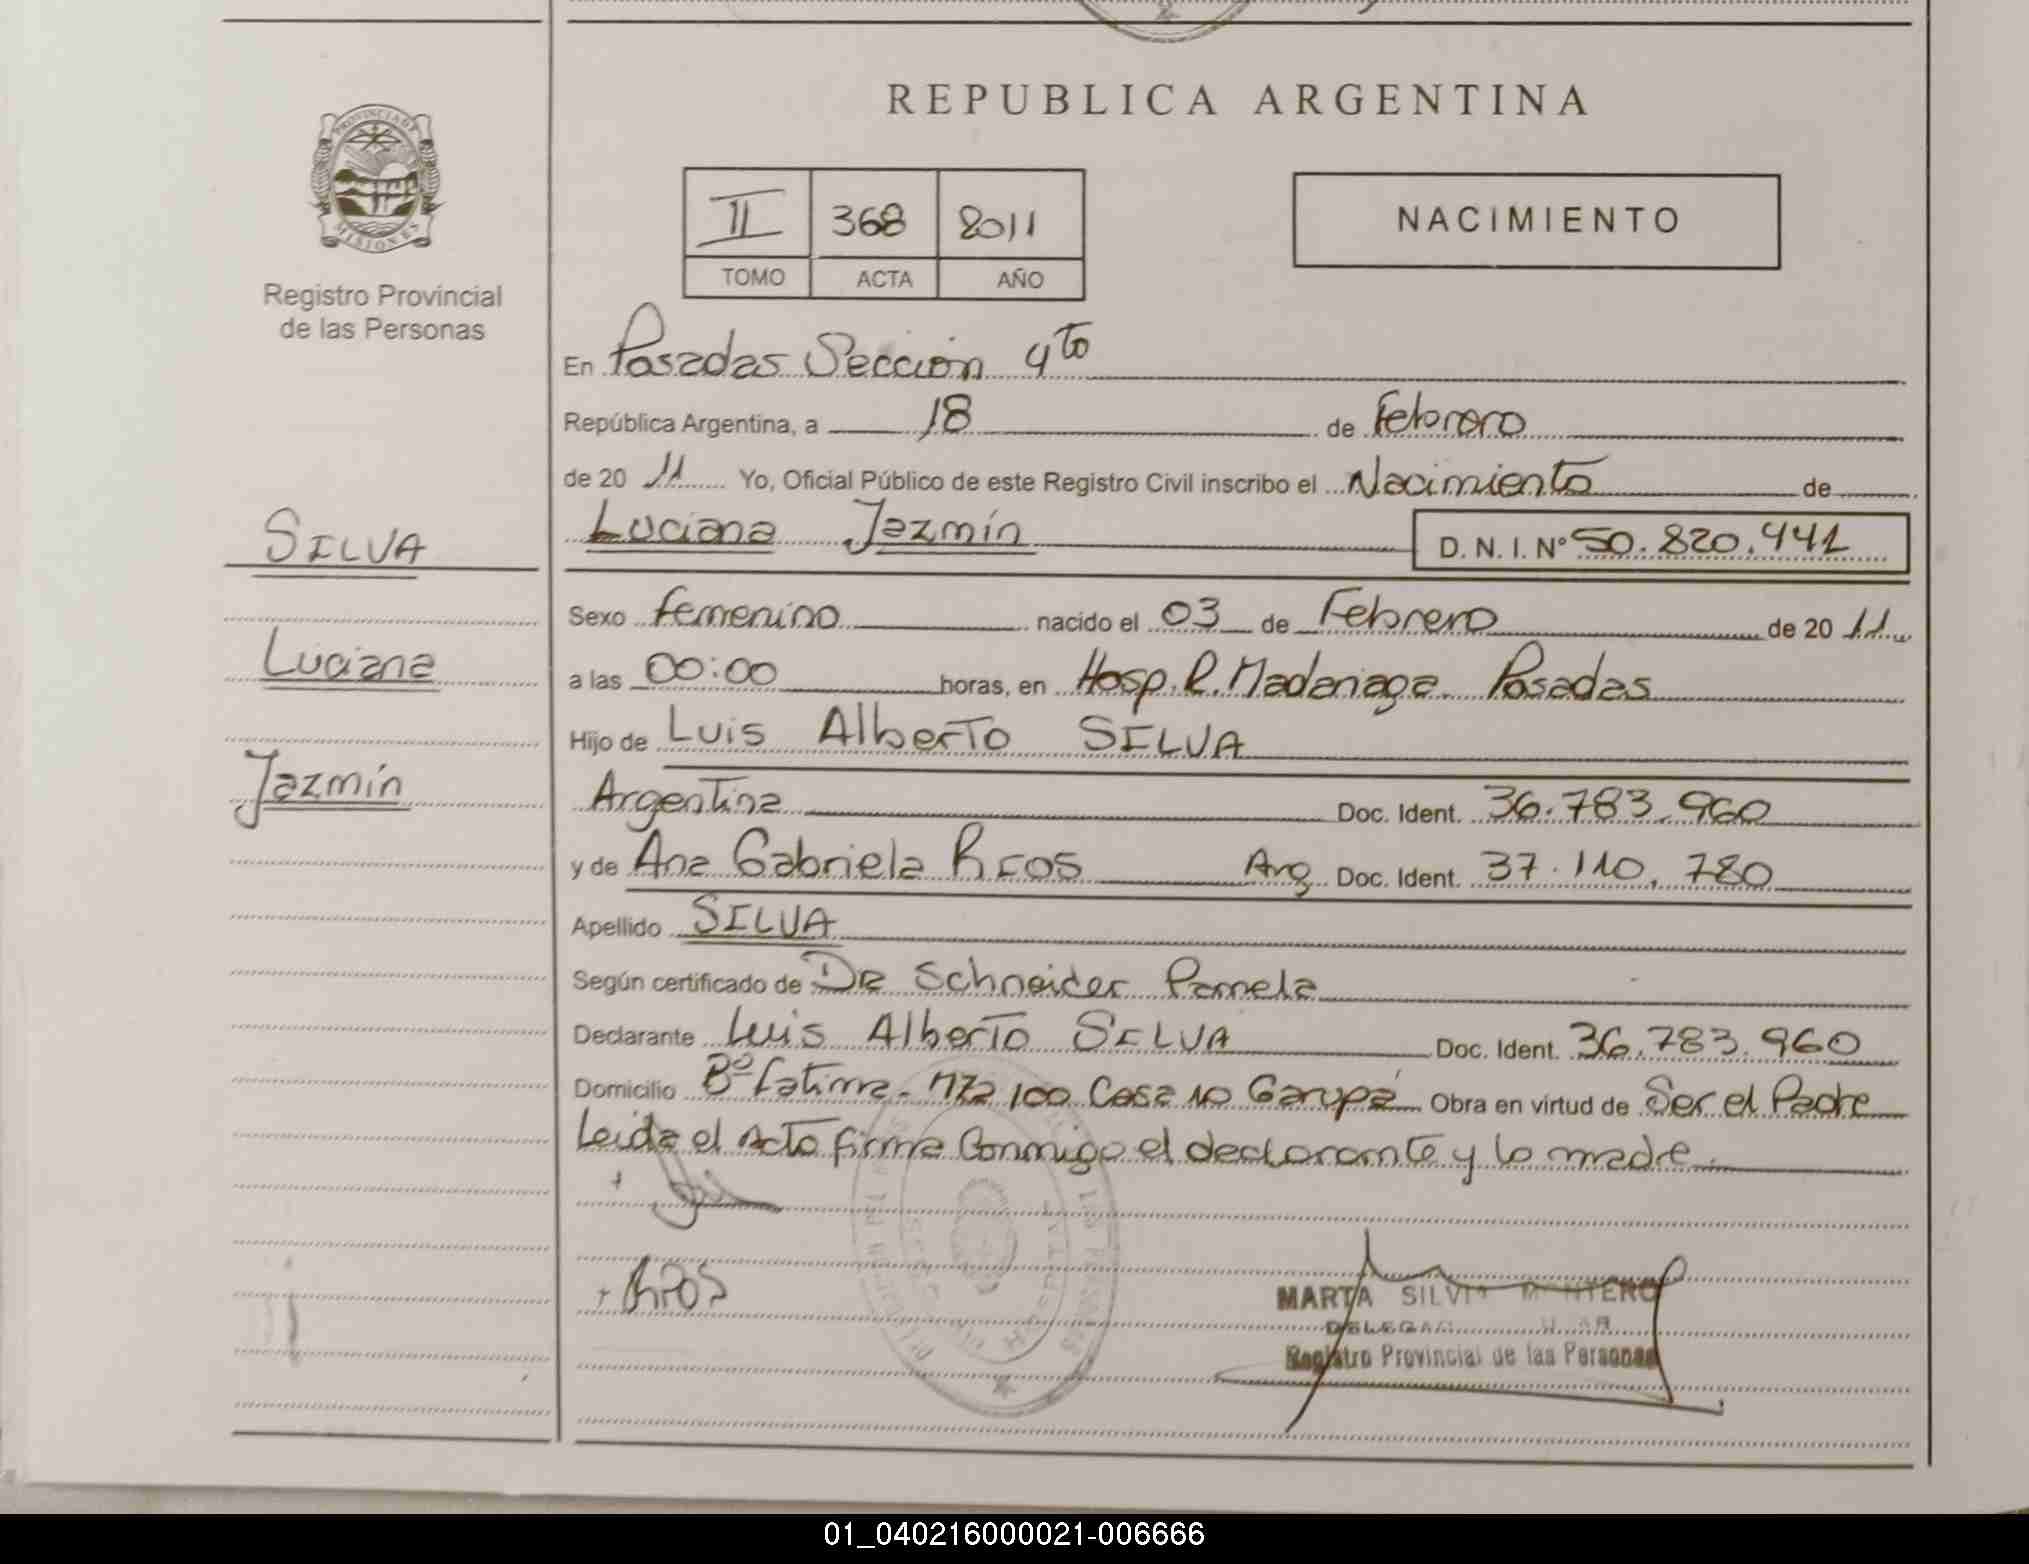 REPUBLICA ARGENTINA
PROVINCIA DE MISIONES
Registro Provincial
de las Personas
II 368 2011
TOMO ACTA AÑO
NACIMIENTO
En Posadas Sección 4to
República Argentina, a 18 de Febrero
de 20 11 Yo, Oficial Público de este Registro Civil inscribo el Nacimiento de
Luciana Jazmín D. N. I. Nº 50.820.441
SILVA
Luciana
Jazmín
Sexo femenino nacido el 03 de Febrero de 20 11
a las 00:00 horas, en Hosp. R. Madariaga Posadas
Hijo de Luis Alberto SILVA
Argentina Doc. Ident. 36.783.960
y de Ana Gabriela RIOS Arg Doc. Ident. 37.110.780
Apellido SILVA
Según certificado de Dra Schneider Pamela
Declarante Luis Alberto SILVA Doc. Ident. 36.783.960
Domicilio Bº Fatima - Mza 100 Casa 10 Garupá Obra en virtud de Ser el Padre
Leida el Acto firma Conmigo el declarante y la madre.
+ RIOS
MARTA SILVIA MONTERO
Registro Provincial de las Personas
01_040216000021-006666